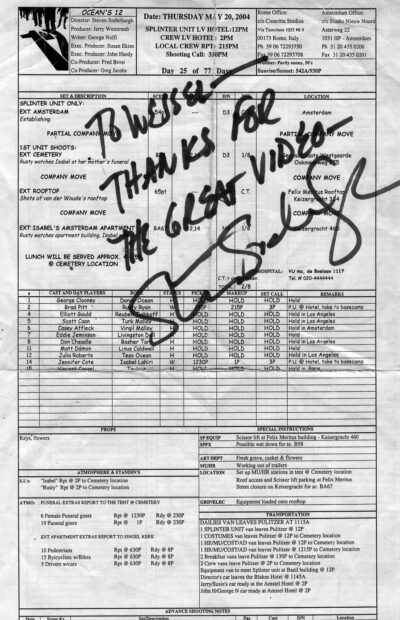 OCEAN'S 12
Director: Steven Soderbergh
Producer: Jerry Weintraub
Writer: George Nolfi
Exec. Producer: Susan Ekins
Exec. Producer: John Hardy
Co-Producer: Fred Brost
Co-Producer: Greg Jacobs
Date: THURSDAY MAY 20, 2004
SPLINTER UNIT LV HOTEL/12PM
CREW LV HOTEL: 2PM
LOCAL CREW RPT: 215PM
Shooting Call: 330PM
Day 25 of 77 Days
Rome Office:
c/o Cinecitta Studios
Via Tuscolana 1055
00173 Rome, Italy
Ph 39 06 72293350
39 06 72293708
Weather: Partly sunny, 50's
Amsterdam Office:
c/o Studio Nieuw Noord
Asterweg 22
1031 HP - Amsterdam
Ph 31 20 435 0200
31 20 435 0201
Sunrise/Sunset: 542A/930P
SET & DESCRIPTION D/N LOCATION
SPLINTER UNIT ONLY:
EXT AMSTERDAM Amsterdam
Establishing
PARTIAL COMPANY MOVE PARTIAL COMPANY MOVE
1ST UNIT SHOOTS:
EXT CEMETERY D3 1/8
Rusty watches Isabel at her father's funeral
COMPANY MOVE COMPANY MOVE
EXT ROOFTOP 65pt C.T. Felix Meritus Rooftop
Shots of van der Woude's rooftop Keizergracht 324
COMPANY MOVE COMPANY MOVE
EXT ISABEL'S AMSTERDAM APARTMENT BA67 2,14 Keizergracht 460
Rusty watches apartment building, Isabel
LUNCH WILL BE SERVED APPROX.
@ CEMETERY LOCATION
HOSPITAL: VU mc, de Boelaan 1117
Tel. # 020-4444444
TO WEISSE-
THANKS FOR
THE GREAT VIDEO-
# CAST AND DAY PLAYERS ROLE STATUS PICKUP MAKEUP SET CALL REMARKS
1 George Clooney Danny Ocean HOLD HOLD HOLD Hold
2 Brad Pitt Rusty Ryan 215P 3P P.U. @ Hotel, take to basecamp
4 Elliott Gould Reuben HOLD HOLD HOLD Hold in Los Angeles
5 Scott Caan Turk Malloy HOLD HOLD HOLD Hold in Los Angeles
6 Casey Affleck Virgil Malloy HOLD HOLD HOLD Hold in Amsterdam
7 Eddie Jemison Livingston HOLD HOLD HOLD Hold
8 Don Cheadle Basher H HOLD HOLD HOLD Hold in Los Angeles
11 Matt Damon Linus Caldwell H HOLD HOLD HOLD Hold
12 Julia Roberts Tess Ocean H HOLD HOLD HOLD Hold in Los Angeles
14 Jennifer Cote Isabel Lahiri W 1230P 1P 3P P.U. @ Hotel, take to basecamp
Vincent Cassel HOLD HOLD HOLD Hold in Paris
PROPS SPECIAL INSTRUCTIONS
Keys, flowers
SP EQUIP Scissor lift at Felix Meritus building - Keizergracht 460
SPFX Possible wet down for sc. B58
ART DEPT Fresh grave, casket & flowers
MU/HR Working out of trailers
LOCATION Set up MU/HR stations in tent @ Cemetery location
Roof access and Scissor lift parking at Felix Meritus
Street closure on Keizergracht for sc. BA67
GRIP/ELEC Equipment loaded onto rooftop
ATMOSPHERE & STANDINS
S.I.'s: "Isabel" Rpt @ 2P to Cemetery location
"Rusty" Rpt @ 2P to Cemetery location
ATMO: FUNERAL EXTRAS REPORT TO THE TENT @ CEMETERY
6 Female Funeral goers Rpt @ 1230P Rdy @ 230P
19 Funeral goers Rpt @ 1P Rdy @ 230P
EXT APARTMENT EXTRAS REPORT TO SINGEL KERK
10 Pedestrians Rpt @ 630P Rdy @ 8P
15 Bicyclists w/Bikes Rpt @ 630P Rdy @ 8P
5 Drivers w/cars Rpt @ 630P Rdy @ 8P
TRANSPORTATION
DAILIES VAN LEAVES PULITZER AT 1115A
1 SPLINTER UNIT van leaves Pulitzer @ 12P
1 COSTUMES van leaves Pulitzer @ 12P to Cemetery location
1 HR/MU/COST/AD van leaves Pulitzer @ 12P to Cemetery location
1 HR/MU/COST/AD van leaves Pulitzer @ 1215P to Cemetery location
2 Breakfast vans leave Pulitzer @ 130P to Cemetery location
2 Crew vans leave Pulitzer @ 2P to Cemetery location
Equipment van to meet Splinter unit at Bazil building @ 12P
Director's car leaves the Blakes Hotel @ 1145A
Jerry/Susie's car ready at the Amstel @ 2P
John H/George N car ready at Amstel Hotel @ 2P
ADVANCE SHOOTING NOTES
Date Scene #'s Set/Description Pgs Cast D/N Location